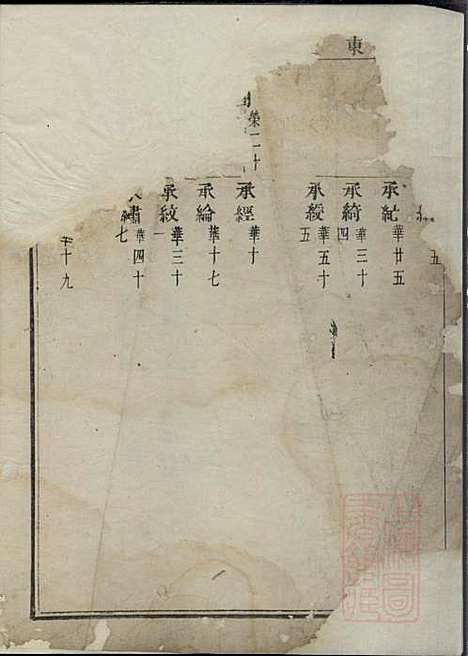 東
五
承紀 華廿五
承綺 華三十四
承綬 華五十五
榮二十
承經 華十
承綸 華十七
承紋 華三十一
繡 華四十七
十九